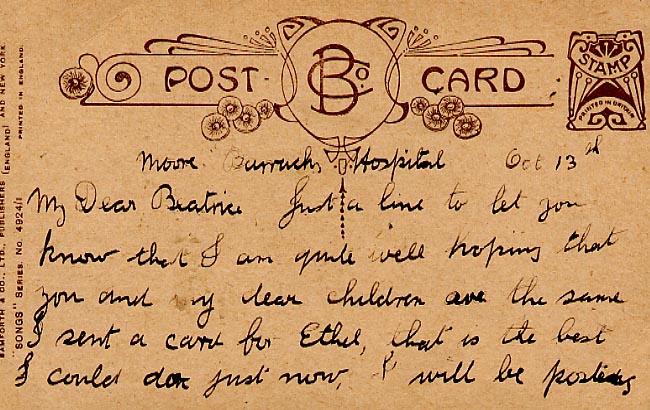 POST CARD
B Co
STAMP
PRINTED IN BRITAIN
BAMFORTH & CO., LTD., PUBLISHERS (ENGLAND) AND NEW YORK.
"SONGS" SERIES No. 4924/1
PRINTED IN ENGLAND.
Moore Barracks Hospital Oct 13 rd
My Dear Beatrice Just a line to let you
know that I am quite well hoping that
you and my dear children are the same
I sent a card for Ethel, that is the best
I could do just now, I will be posting